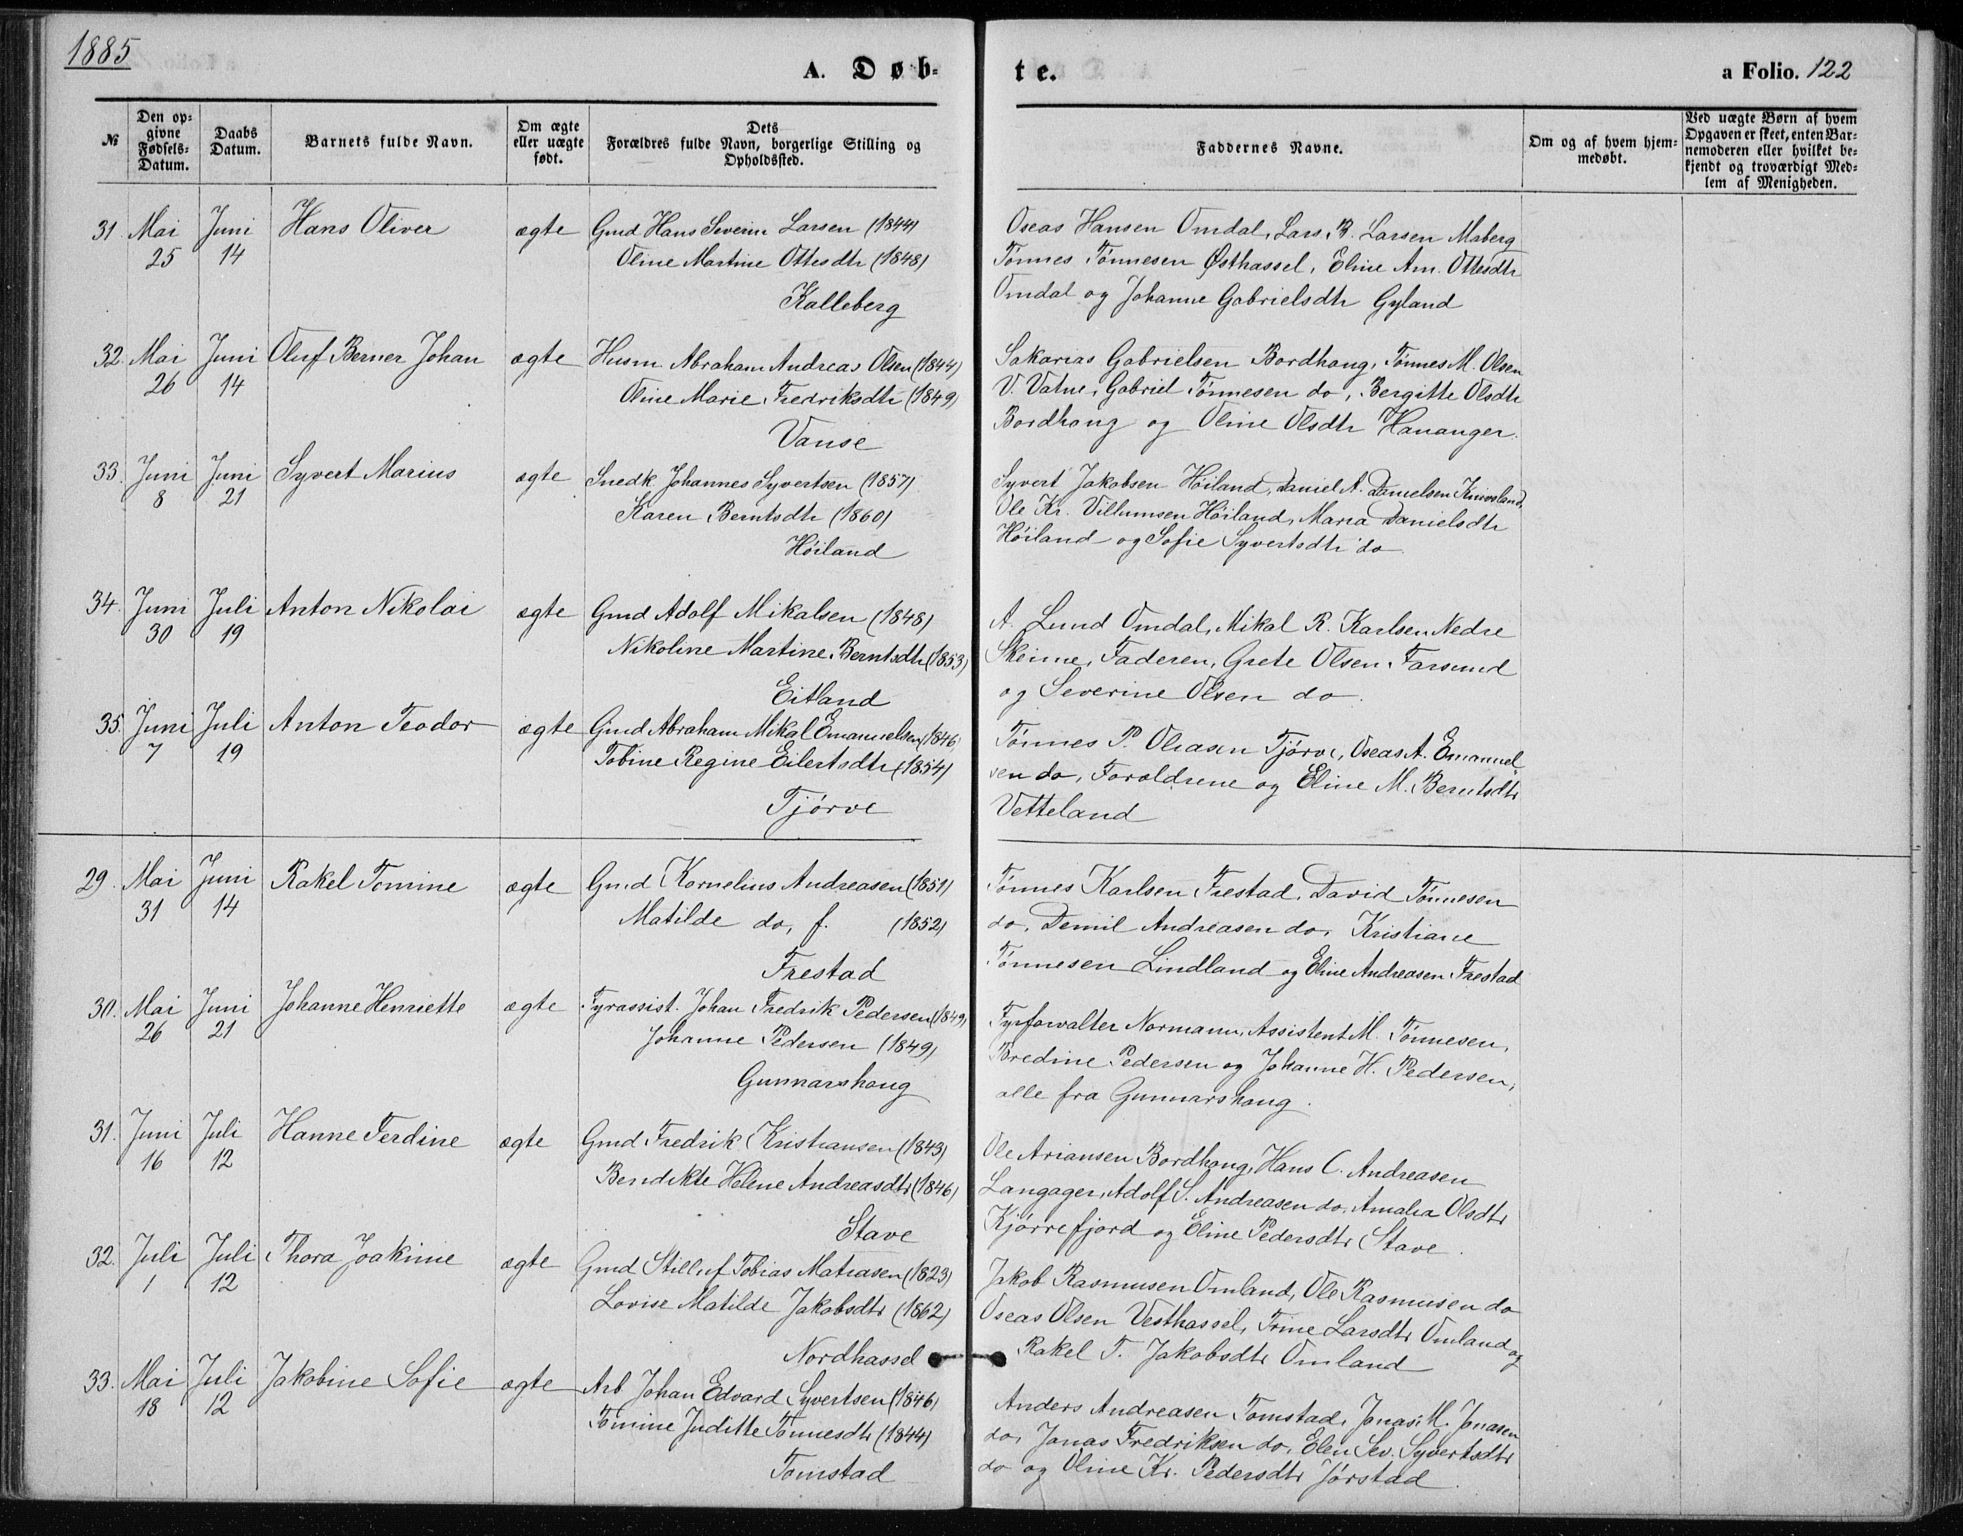 1885
A. Døb-
te.
a Folio. 122
№
Den op-
givne
Fødsels-
Datum.
Daabs
Datum.
Barnets fulde Navn.
Om ægte
eller uægte
født.
Dets
Forældres fulde Navn, borgerlige Stilling og
Opholdssted.
Faddernes Navne.
Om og af hvem hjem-
medøbt.
Ved uægte Børn af hvem
Opgaven er skeet, enten Bar-
nemoderen eller hvilket be-
kjendt og troværdigt Med-
lem af Menigheden.
31. Mai 25 Juni 14 Hans Oliver ægte Gmd Hans Severin Larsen (1844)
Oline Martine Ottesdtr (1848)
Kalleberg
Oseas Hansen Omdal, Lars B. Larsen Maberg
Tønnes Tønnesen Østhassel, Eline Am. Ottesdtr
Omdal og Johanne Gabrielsdtr Gyland
32. Mai 26 Juni 14 Oluf Berner Johan ægte Husm Abraham Andreas Olsen (1844)
Oline Marie Fredriksdtr (1849)
Vanse
Sakarias Gabrielsen Bordhaug, Tønnes M. Olsen
V. Vatne, Gabriel Tønnesen do, Bergitte Olsdtr
Bordhaug og Oline Olsdtr Hananger.
33. Juni 8 Juni 21 Syvert Marius ægte Snedk Johannes Syvertsen (1857)
Karen Berntsdtr (1860)
Høiland
Syvert Jakobsen Høiland, Daniel A. Danielsen
Ole Kr. Villumsen Høiland, Maria Danielsdtr
Høiland og Sofie Syvertsdtr do
34. Juni 30 Juli 19 Anton Nikolai ægte Gmd Adolf Mikalsen (1848)
Nikoline Martine Berntsdtr (1853)
Eitland
A. Lund Omdal, Mikal R. Karlsen Nedre
Skeime, Faderen, Grete Olsen Farsund
og Severine Olsen do.
35. Juni 7 Juli 19 Anton Teodor ægte Gmd Abraham Mikal Emanuelsen (1846)
Tobine Regine Eilertsdtr (1854)
Tjørve
Tønnes P. Oliasen Tjørve, Oseas A. Emanuel
sen do, Forældrene og Eline M. Berntsdtr
Vetteland
29. Mai 31 Juni 14 Rakel Tomine ægte Gmd Kornelius Andreasen (1851)
Matilde do, f. (1852)
Frestad
Tønnes Karlsen Frestad, David Tønnesen
do, Demil Andreasen do, Kristiane
Tønnesen Lindland og Eline Andreasen Frestad
30. Mai 26 Juni 21 Johanne Henriette ægte Fyrassist. Johan Fredrik Pedersen (1849)
Johanne Pedersen (1849)
Gunnarshaug
Fyrforvalter Normann, Assistent M. Tønnesen,
Bredine Pedersen og Johanne H. Pedersen,
alle fra Gunnarshaug.
31. Juni 16 Juli 12 Hanne Ferdine ægte Gmd Fredrik Kristiansen (1843)
Bendikte Helene Andreasdtr (1846)
Stave
Ole Ariansen Bordhaug, Hans C. Andreasen
Langager, Adolf S. Andreasen do, Amalia Olsdtr
Kjørrefjord og Eline Pedersdtr Stave.
32. Juli 1 Juli 12 Thora Joakime ægte Gmd Tobias Matiasen (1823)
Lovise Matilde Jakobsdtr (1862)
Nordhassel
Jakob Rasmusen Omland, Ole Rasmusen do
Oseas Olsen Vesthassel, Trine Larsdtr Omland og
Rakel T. Jakobsdtr Omland
33. Mai 18 Juli 12 Jakobine Sofie ægte Arb Johan Edvard Syvertsen (1846)
Tomine Juditte Tønnesdtr (1844)
Tomstad
Anders Andreasen Tomstad, Jonas M. Jonasen
do, Jonas Fredriksen do, Elen Sev. Syvertsdtr
do og Oline Kr. Pedersdtr Jørstad.